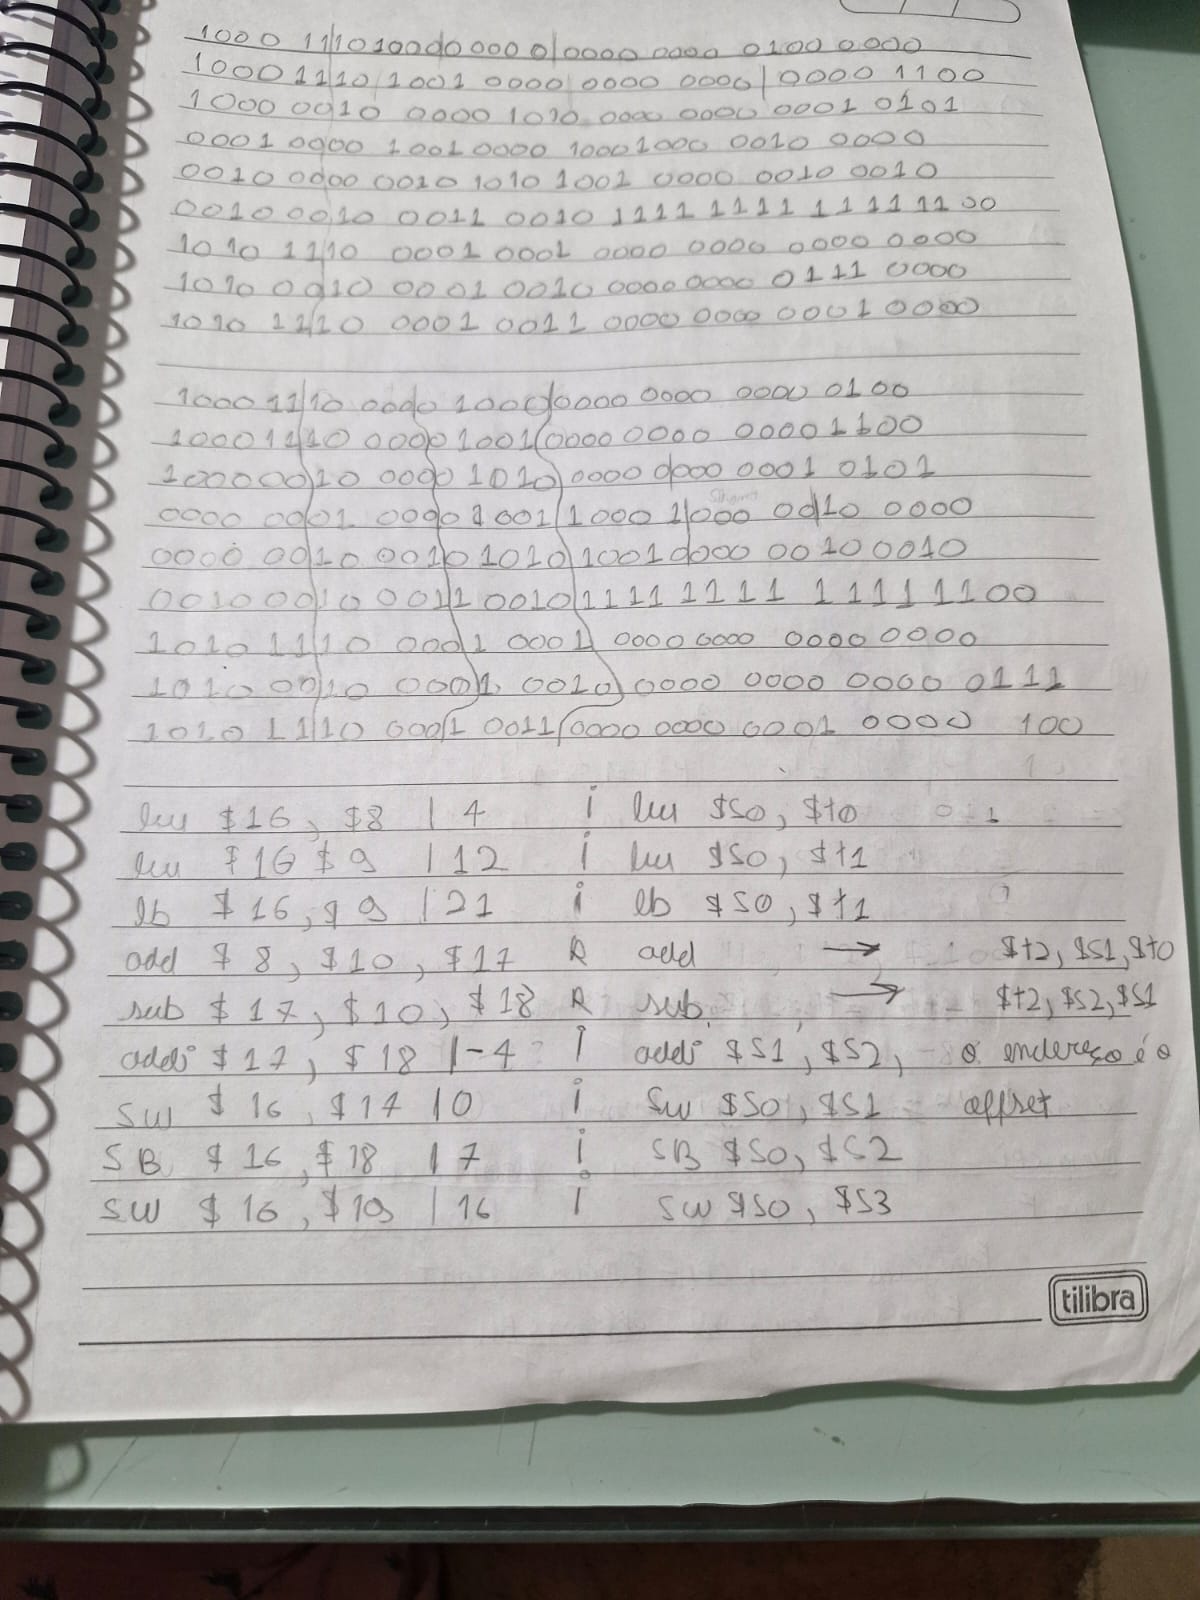 1000 111010000000 0 0000 0000 0100 0000
10001110 1001 0000 0000 0000 0000 1100
1000 0010 0000 1010 0000 0000 0001 0101
0001 0000 1001 0000 1000 1000 0010 0000
0010 0000 0010 1010 1001 0000 0010 0010
0010 0010 0011 0010 1111 1111 1111 1100
1010 1110 0001 0001 0000 0000 0000 0000
1010 0010 0001 0010 0000 0000 0111 0000
1010 1110 0001 0011 0000 0000 0001 0000
1000 1110 0000 1000 0000 0000 0000 0100
1000 1110 0000 1001 0000 0000 0000 1100
1000 0010 0000 1010 0000 0000 0001 0101
0000 0001 0000 1001 1000 1000 0010 0000
0000 0010 0010 1010 1001 0000 0010 0010
0010 0010 0011 0010 1111 1111 1111 1100
1010 1110 0001 0001 0000 0000 0000 0000
1010 0010 0001 0010 0000 0000 0000 0111
1010 1110 0001 0011 0000 0000 0001 0000 100
lw $16, $8 | 4 i lw $S0, $t0
lw $16 $9 | 12 i lw $S0, $t1
lb $16, $9 | 21 i lb $S0, $t1
add $8, $10, $17 R add → $t2, $S1, $t0
sub $17, $10, $18 R sub → $t2, $S2, $S1
addi $17, $18 | -4 i addi $S1, $S2, o endereço é o
SW $16, $17 | 0 i SW $S0, $S1 offset
SB $16, $18 | 7 i SB $S0, $S2
SW $16, $19 | 16 i SW $S0, $S3
tilibra